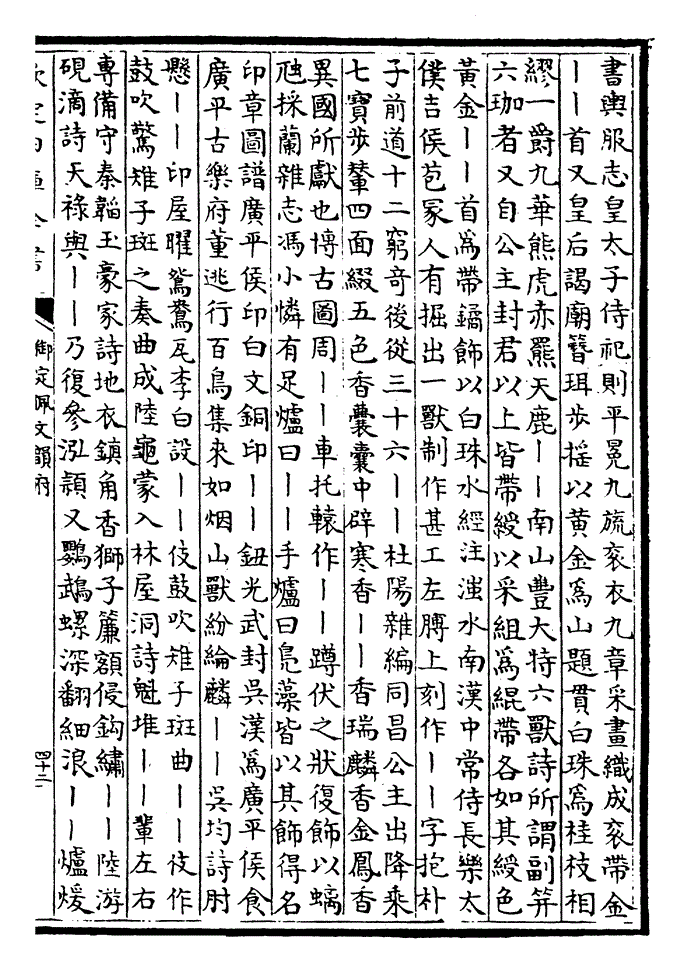 書輿服志皇太子侍祀則平冕九旒衮衣九章采畫織成衮帶金
——首又皇后謁廟簪珥步摇以黄金為山題貫白珠為桂枝相
繆一爵九華熊虎赤羆天鹿——南山豐大特六獸詩所謂副笄
六珈者又自公主封君以上皆帶綬以采組為緄帶各如其綬色
黃金——首為帶鐍飾以白珠水經注滍水南漢中常侍長樂太
僕吉侯苞冢人有掘出一獸制作甚工左膊上刻作——字抱朴
子前道十二窮竒後從三十六——杜陽雜編同昌公主出降乗
七寶步輦四面綴五色香囊囊中辟寒香——香瑞麟香金鳳香
異國所獻也博古圖周——車托轅作——蹲伏之狀復飾以螭
虺採蘭雜志馮小憐有足爐曰——手爐曰鳧藻皆以其飾得名
印章圖譜廣平侯印白文銅印——鈕光武封吳漢為廣平侯食
廣平古樂府董逃行百鳥集來如烟山獸紛綸麟——吳均詩肘
懸——印屋曜鴛鴦瓦李白設——伎鼓吹雉子斑曲——伎作
鼓吹驚雉子斑之奏曲成陸龜蒙入林屋洞詩魁堆——輩左右
專備守秦韜玉豪家詩地衣鎮角香獅子簾額侵鈎繡——陸游
硯滴詩天祿輿——乃復參泓頴又鸚鵡螺深翻細浪——爐煖
欽定四庫全書
御定佩文韻府
四十二